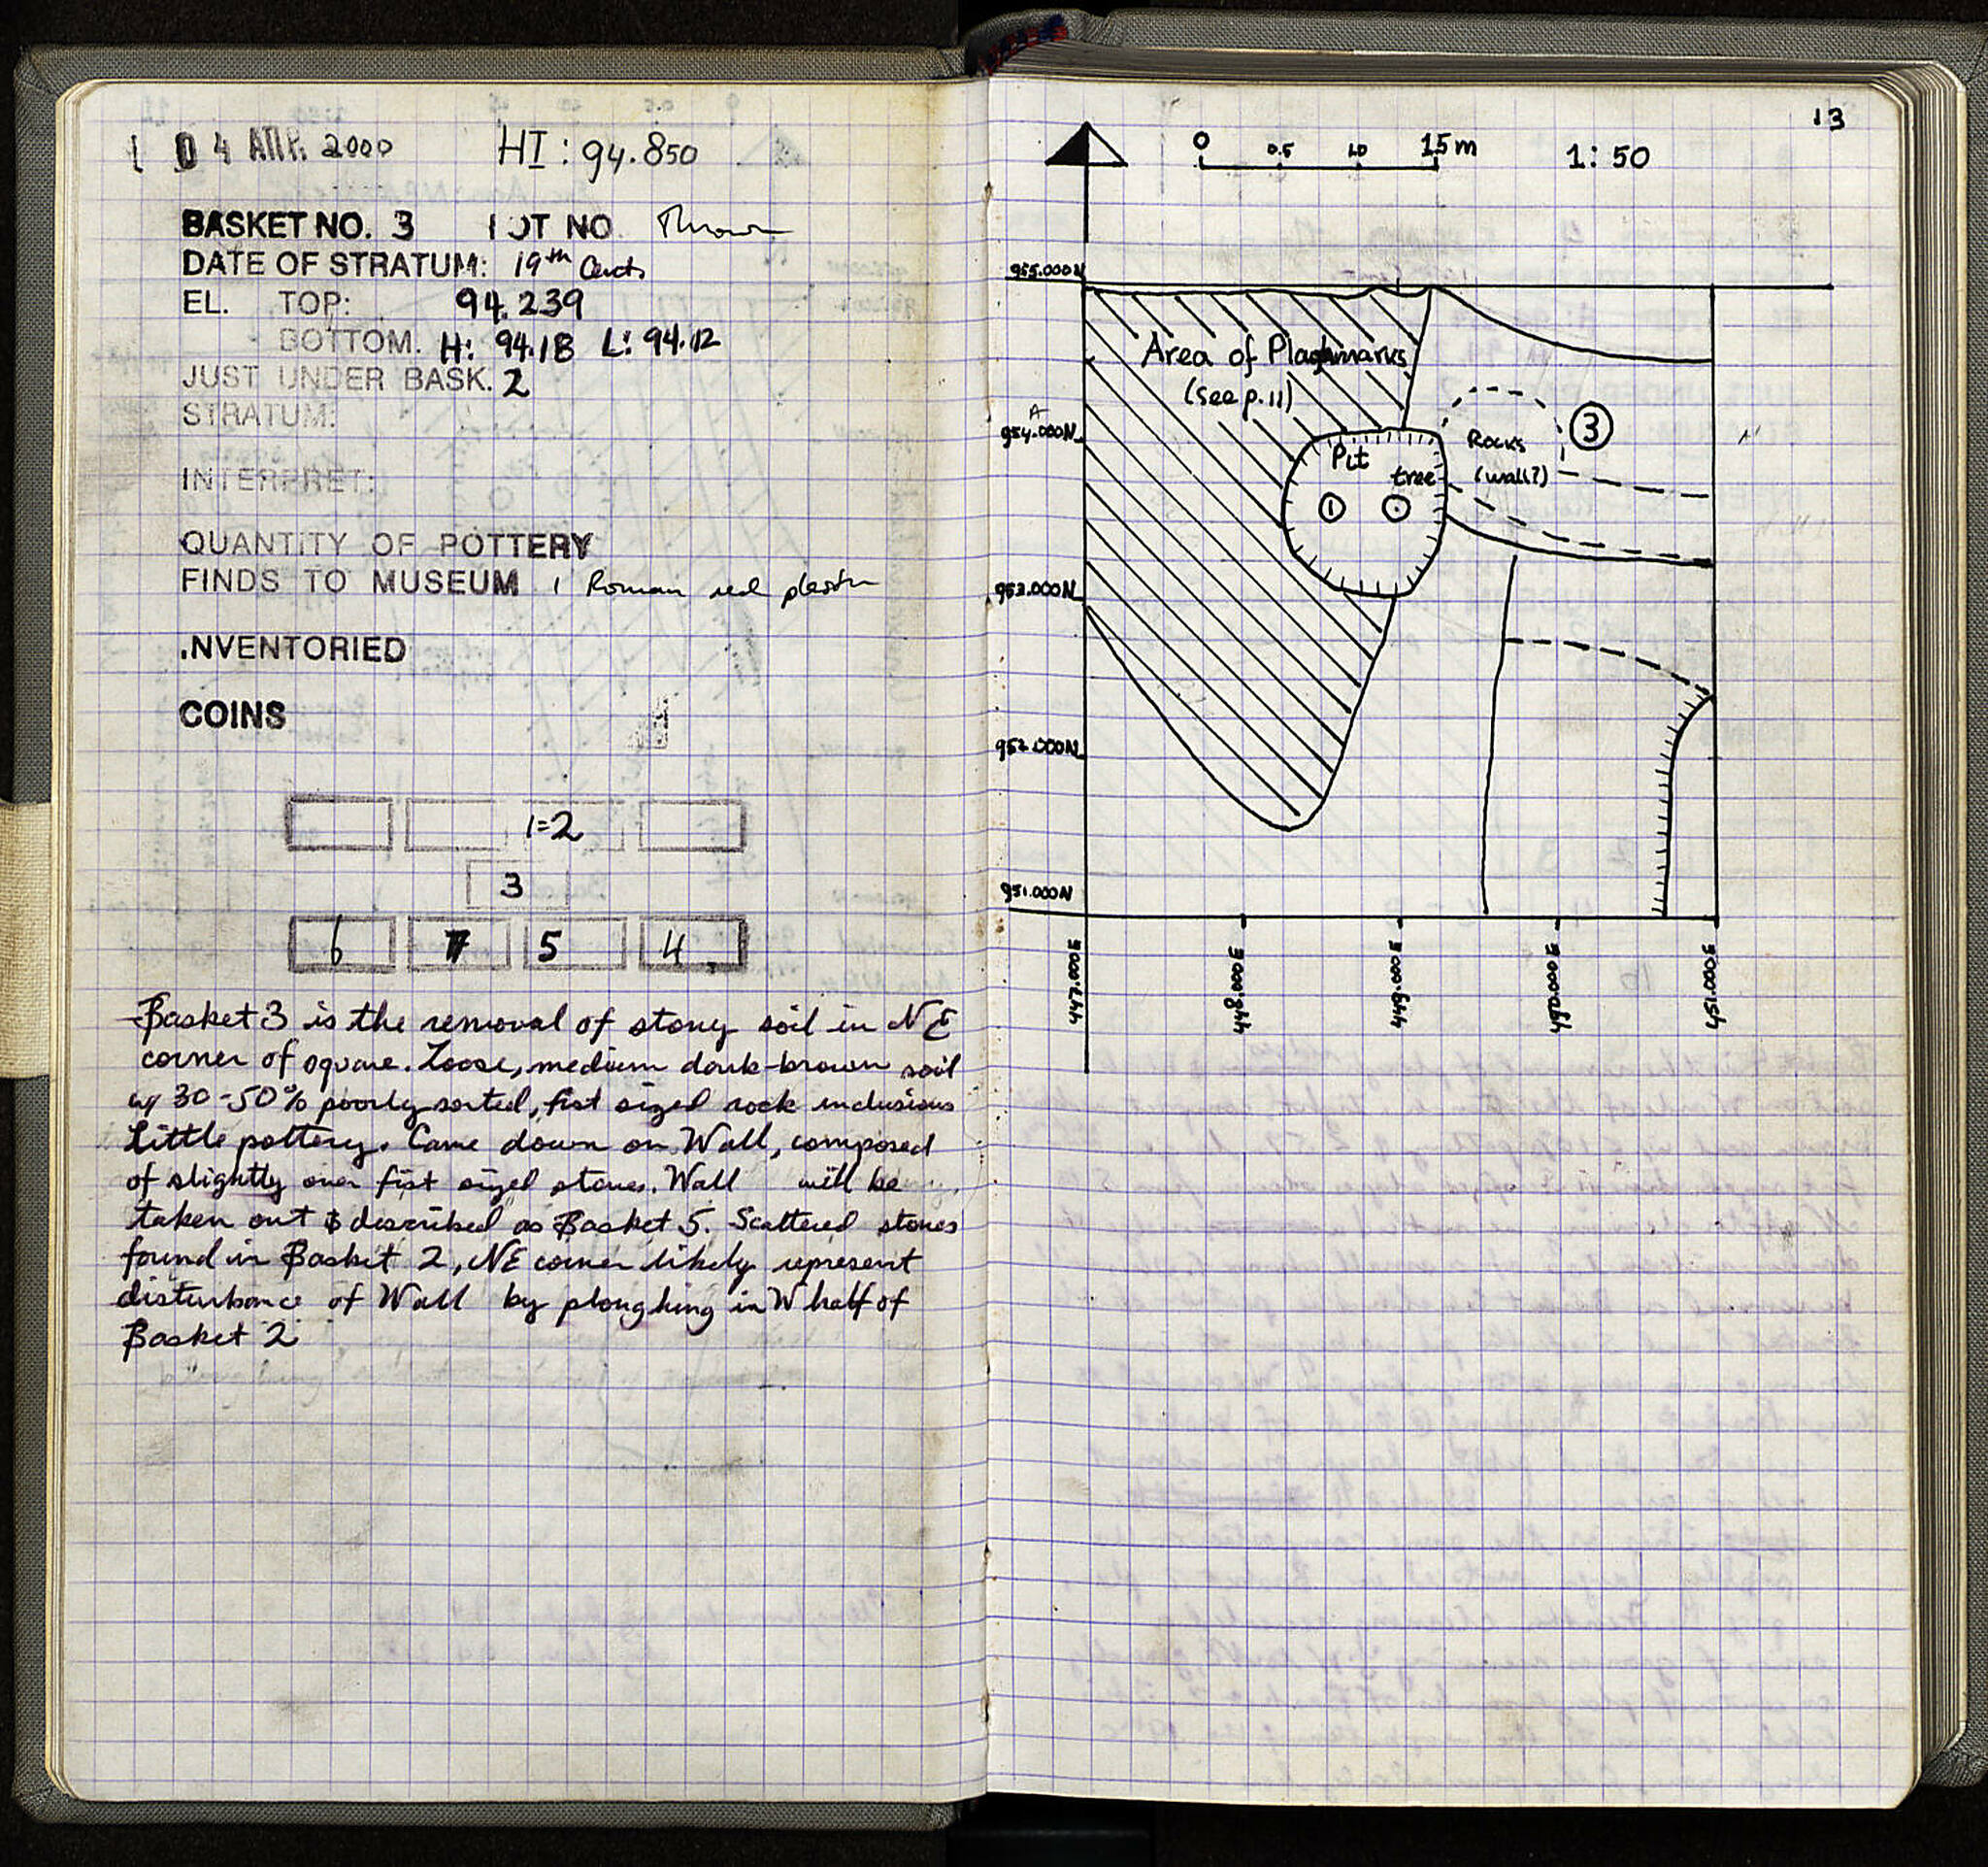 0 4 ΑΠΡ. 2000 HI: 94.850
BASKET NO. 3 LOT NO Thrown
DATE OF STRATUM: 19th Cent.
EL. TOP: 94.239
BOTTOM. H: 94.18 L: 94.12
JUST UNDER BASK. 2
STRATUM:
INTERPRET:
QUANTITY OF POTTERY
FINDS TO MUSEUM 1 Roman red plaster
INVENTORIED
COINS
1=2
3
6 7 5 4
Basket 3 is the removal of stony soil in NE
corner of square. Loose, medium dark-brown soil
w/ 30-50% poorly sorted, fist sized rock inclusions
Little pottery. Came down on Wall, composed
of slightly over fist sized stones. Wall will be
taken out & described as Basket 5. Scattered stones
found in Basket 2, NE corner likely represent
disturbance of Wall by ploughing in W half of
Basket 2
13
0 0.5 1.0 1.5 m 1:50
955.000N
Area of Ploughmarks
(see p. 11)
954.000N
Rocks
(wall?)
3
Pit
tree
953.000N
952.000N
951.000N
447.000E
448.000E
449.000E
450.000E
451.000E